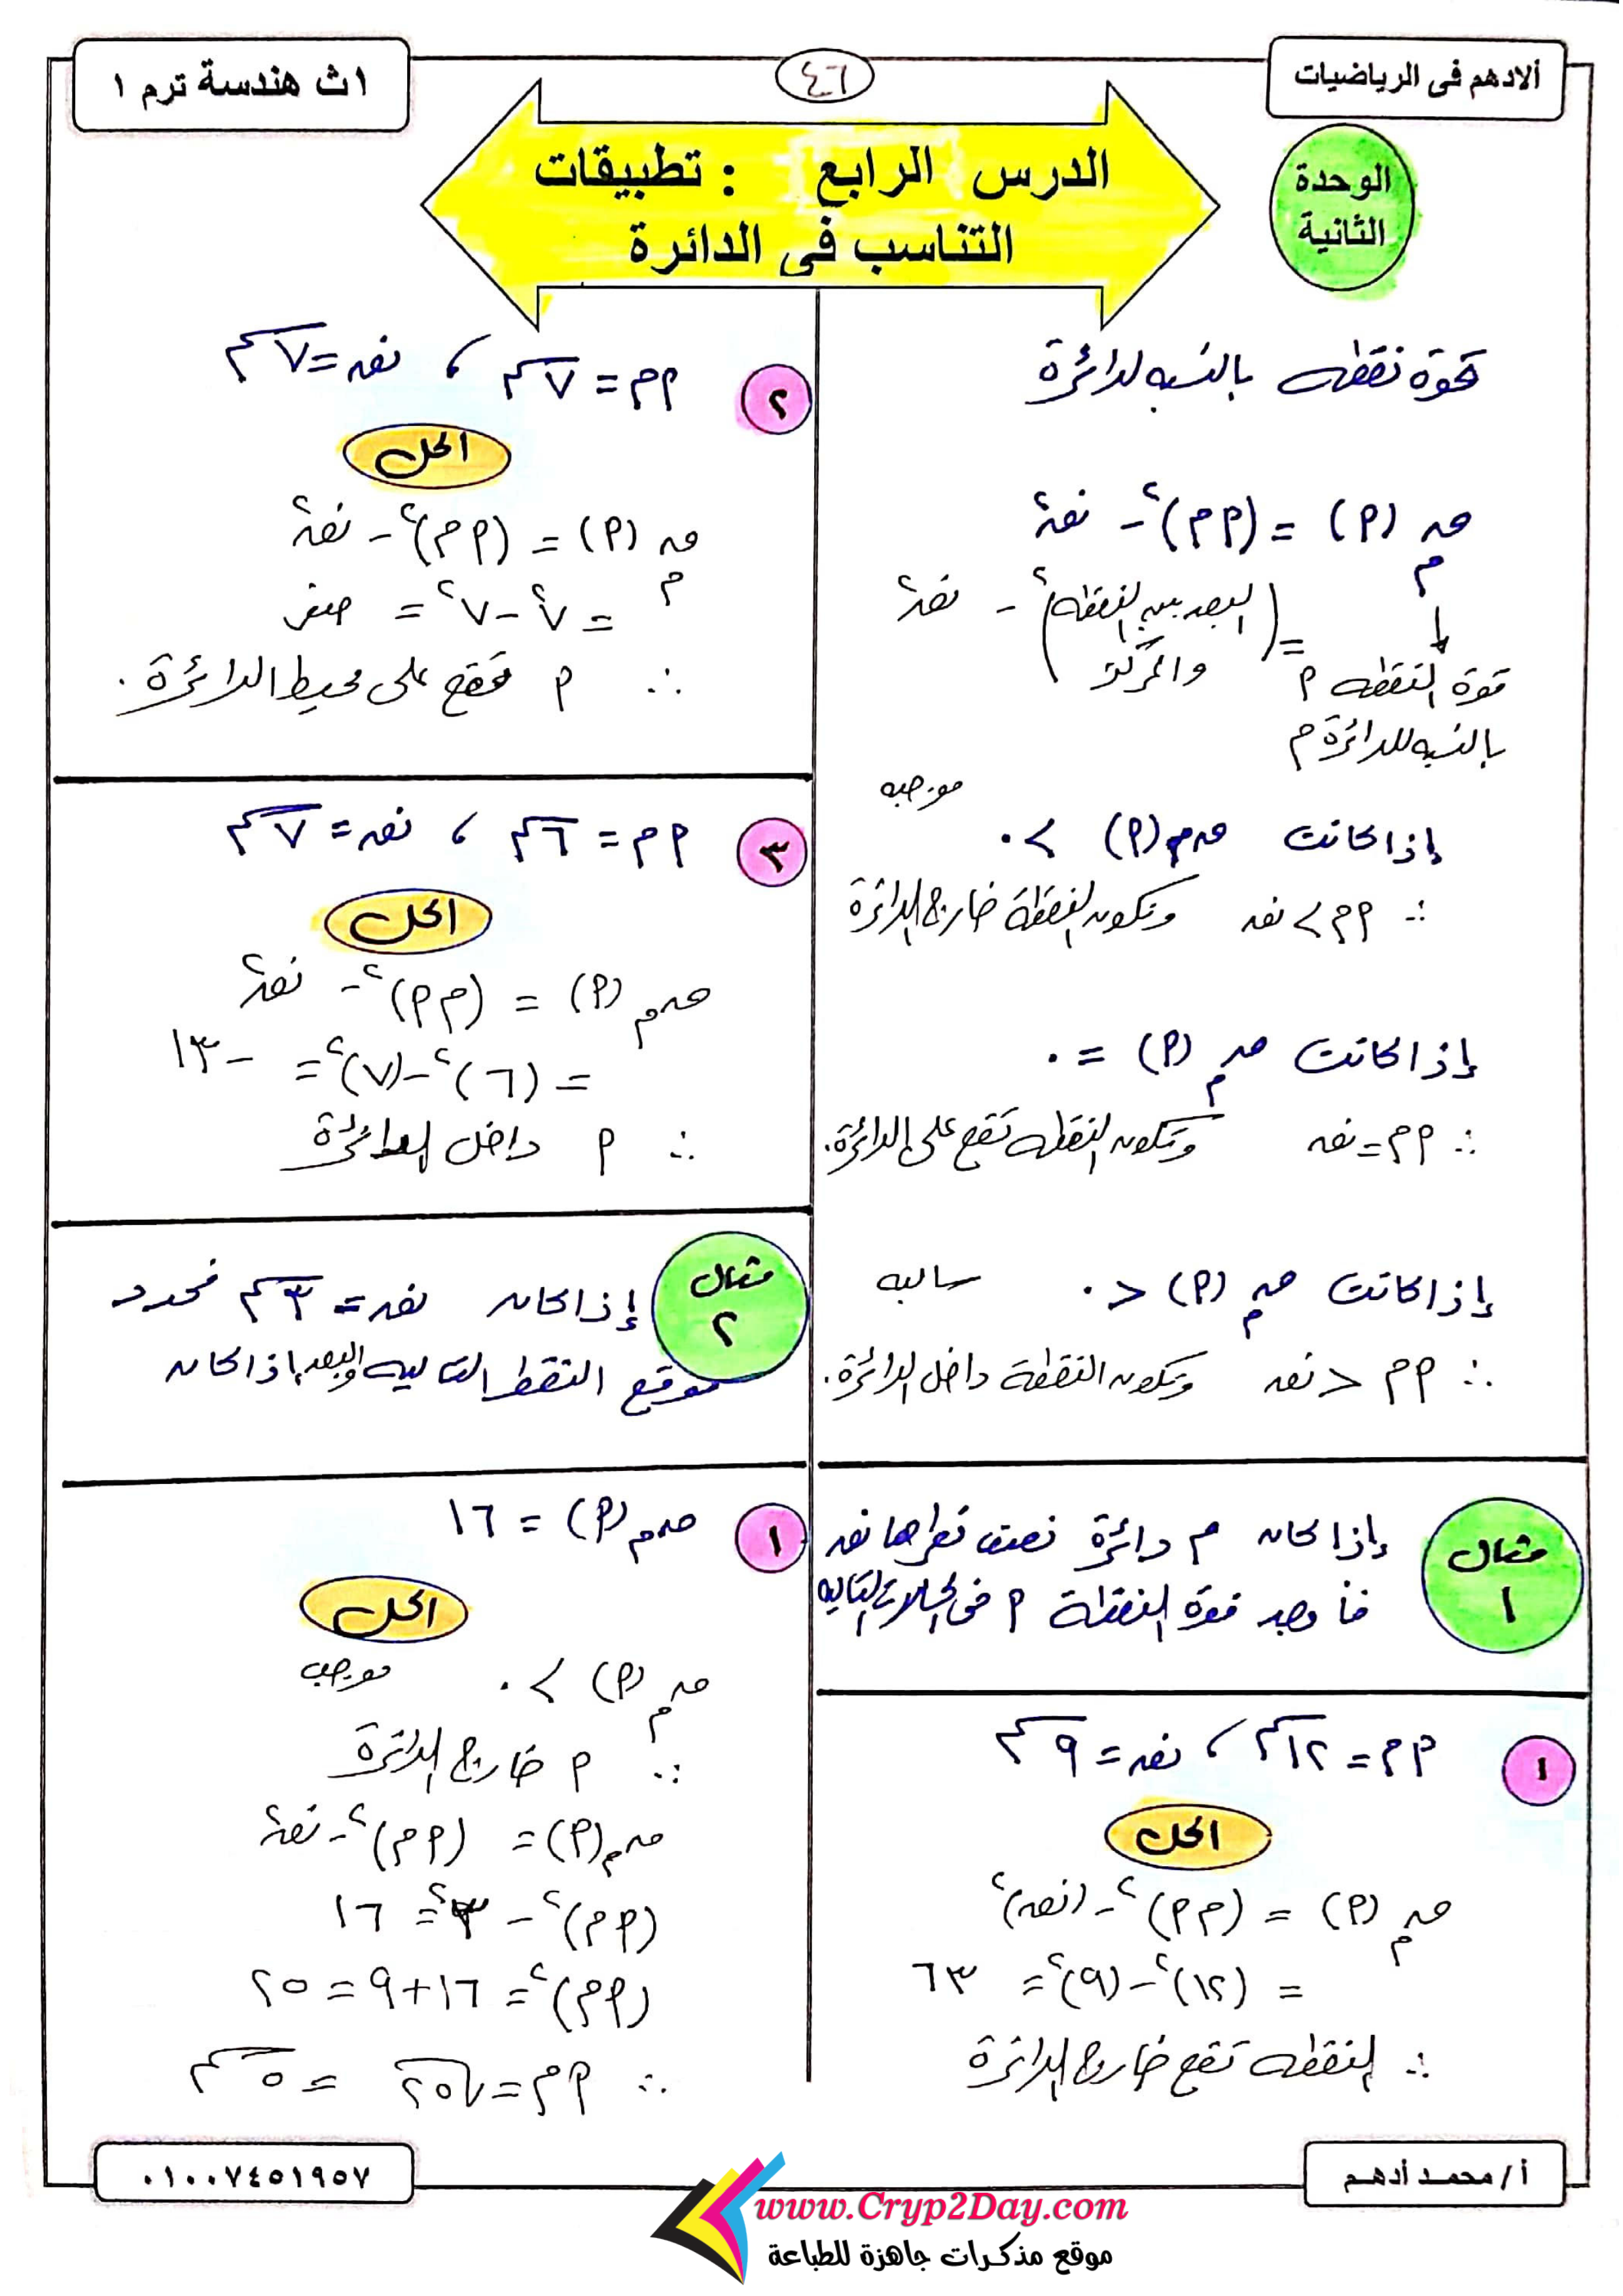 ألادهم فى الرياضيات
٤٦
١ث هندسة ترم ١
الوحدة
الثانية
الدرس الرابع : تطبيقات
التناسب فى الدائرة
قوة نقطه بالنسبه لدائرة
ق م (P) = (P م)² - نق²
= (البعد بين النقطه والمركز)² - نق²
قوة النقطه P
بالنسبه للدائرة م
إذا كانت ق م (P) > ٠ موجبه
∴ P م > نق وتكون النقطة خارج الدائرة
إذا كانت ق م (P) = ٠
∴ P م = نق وتكون النقطه تقع على الدائرة.
إذا كانت ق م (P) < ٠ سالبه
∴ P م < نق وتكون النقطة داخل الدائرة.
مثال ١
إذا كان م دائرة نصف قطرها نق
فأوجد قوة النقطة P فى الحالات التاليه
١
P م = ١٢ سم ، نق = ٩ سم
الحل
ق م (P) = (P م)² - (نق)²
= (١٢)² - (٩)² = ٦٣
∴ النقطه تقع خارج الدائرة
٢
P م = ٧ سم ، نق = ٧ سم
الحل
ق م (P) = (P م)² - نق²
= ٧² - ٧² = صفر
∴ P تقع على محيط الدائرة.
٣
P م = ٦ سم ، نق = ٧ سم
الحل
ق م (P) = (P م)² - نق²
= (٦)² - (٧)² = -١٣
∴ P داخل الدائرة
مثال ٢
إذا كان نق = ٣ سم فحدد
موقع النقط التاليه والبعد إذا كان
١
ق م (P) = ١٦
الحل
ق م (P) > ٠ موجب
∴ P خارج الدائرة
ق م (P) = (P م)² - نق²
(P م)² - ٣² = ١٦
(P م)² = ١٦ + ٩ = ٢٥
∴ P م = √٢٥ = ٥ سم
أ / محمد أدهم
٠١٠٠٧٤٥١٩٥٧
www.Cryp2Day.com
موقع مذكرات جاهزة للطباعة